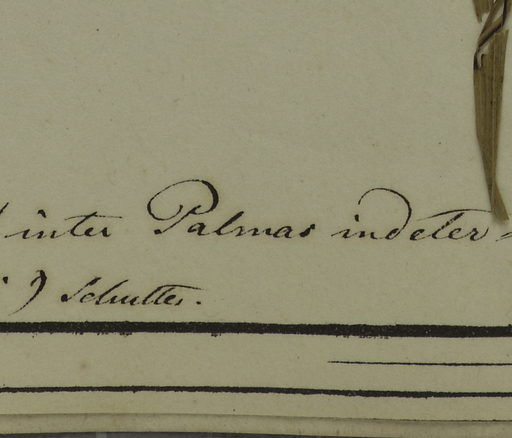 inter Palmas indeter
) Schultes.